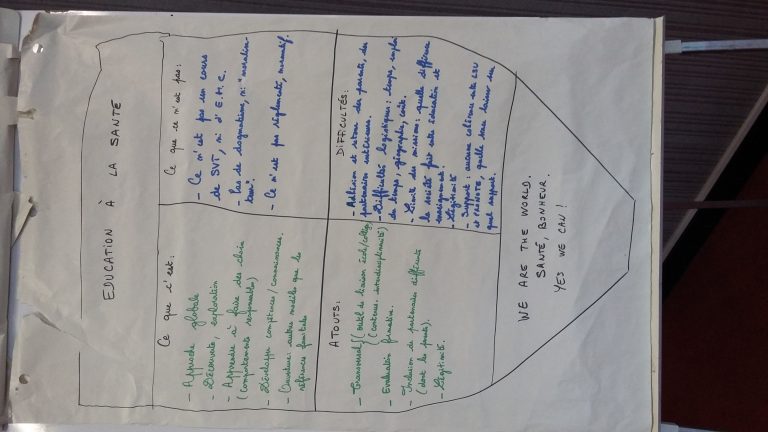 EDUCATION À LA SANTÉ
Ce que c'est:
- Approche globale
- Découverte, exploration
- Apprendre à faire des choix
(comportements responsables)
- Développer compétences / connaissances.
- Ouverture: autres modèles que les
références familiales
Ce que ce n'est pas:
- Ce n'est pas un cours
de SVT, ni d'E.M.C.
- Pas de dogmatisme, ni "moralisa-
teur".
- Ce n'est pas réglementé, normatif.
ATOUTS:
- Transversal (outil de liaison école/collège
(contenus. interdisciplinarité)
- Evaluation formative.
- Inclusion de partenaires différents
(dont les parents).
- Légitimité.
DIFFICULTÉS:
- Adhésion et retours des parents, des
partenaires extérieurs.
- Difficultés logistiques: temps, emploi
du temps, géographie, coûts.
- Limite des missions: quelle différence
la société fait entre éducation et
enseignement?
- Légitimité
- Support: aucune cohérence entre LSU
et , quelle trace laisser sur
quel support.
WE ARE THE WORLD.
SANTÉ, BONHEUR.
YES WE CAN!